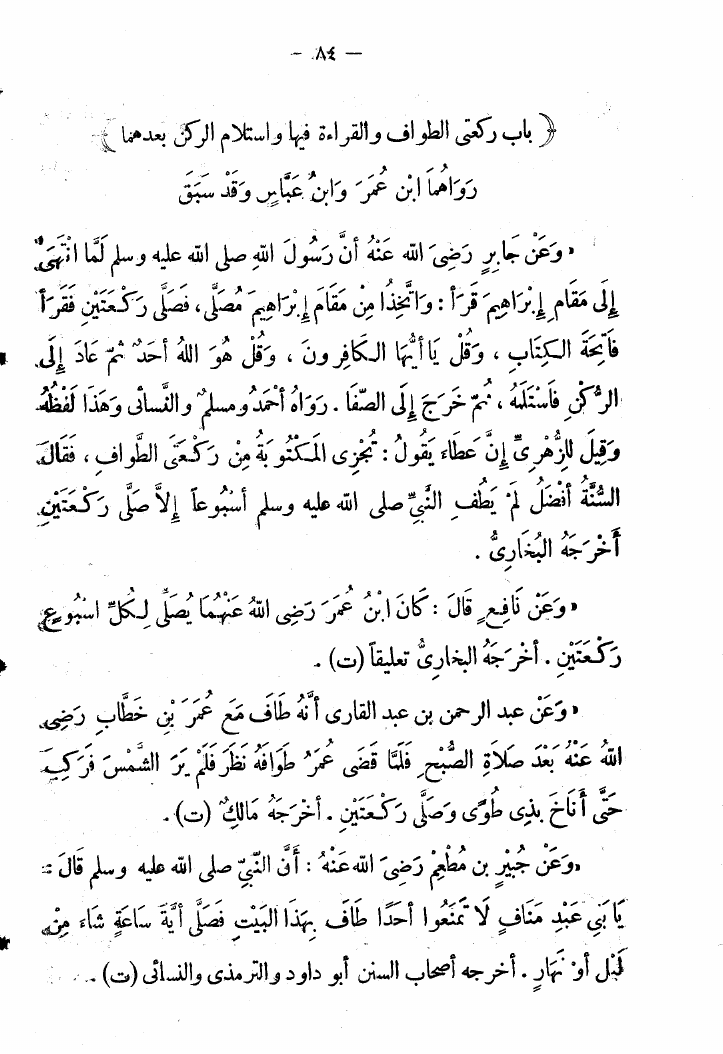 — ٨٤ —
﴿ باب ركعتى الطواف والقراءة فيها واستلام الركن بعدهما ﴾
رَوَاهُمَا ابْنُ عُمَرَ وَابْنُ عَبَّاسٍ وَقَدْ سَبَقَ
• وَعَنْ جَابِرٍ رَضِىَ الله عَنْهُ أنَّ رَسُولَ اللهِ صلى الله عليه وسلم لَمَّا انْتَهَىٰ
إِلَى مَقَامِ إِبْرَاهِيمَ قَرَأ : وَاتَّخِذُا مِنْ مَقَامِ إِبْرَاهِيمَ مُصَلًّى، فَصَلَّى رَكْعَتَيْنِ فَقَرَأ
فَاتِحَةَ الكِتَابِ ، وَقُلْ يَا أيُّهَا الكَافِرونَ ، وَقُلْ هُوَ اللهُ أحَدٌ ثُمَّ عَادَ إِلَى
الرُّكْنِ فَاسْتَلَمَهُ ، ثُمَّ خَرَجَ إِلَى الصَّفَا . رَوَاهُ أحْمَدُ ومسلمٌ والنَّسائى وَهَذَا لَفْظُهُ
وَقِيلَ لِلزُّهْرِىِّ إِنَّ عَطَاء يَقُولُ : تُجْزِى المَكْتُوبَةُ مِنْ رَكْعَتَى الطَّوافِ ، فَقَالَ
السُّنَّةُ أفْضَلُ لَمْ يَطُفِ النَّبِىِّ صلى الله عليه وسلم أسْبُوعاً إِلاَّ صَلَّى رَكْعَتَيْنِ
أَخْرَجَهُ البُخَارِىُّ .
• وَعَنْ نَافِعٍ قَالَ : كَانَ ابْنُ عُمَرَ رَضِى اللهُ عَنْهُمَا يُصَلِّى لِكُلِّ اسْبُوعٍ
رَكْعَتَيْنِ . أخْرَجَهُ البخارِىُّ تعليقاً (ت) .
• وَعَنْ عبد الرحمن بن عبد القارى أنَّهُ طَافَ مَعَ عُمَرَ بْنِ خَطَّابِ رَضِىَ
اللهُ عَنْهُ بَعْدَ صَلاَةِ الصُّبْحِ فَلَمَّا قَضَى عُمَرُ طَوَافَهُ نَظَرَ فَلَمْ يَرَ الشَّمْسَ فَرَكِبَ
حَتَّى أَنَاخَ بِذِى طُوًى وَصَلَّى رَكْعَتَيْنِ . أخْرَجَهُ مَالِكٌ (ت) .
• وَعَنْ جُبَيْرِ بن مُطْعِمٍ رَضِىَ الله عَنْهُ : أنَّ النَّبِىّ صلى الله عليه وسلم قَالَ :
يَا بَنِي عَبْدِ مَنَافٍ لَا تَمْنَعُوا أحَدًا طَافَ بِهَذَا البَيْتِ فَصَلَّى أيَّةَ سَاعَةٍ شَاء مِنْ
لَيْلٍ أوْ نَهَارٍ . أخرجه أصحاب السنن أبو داود والترمذى والنسائى (ت) .